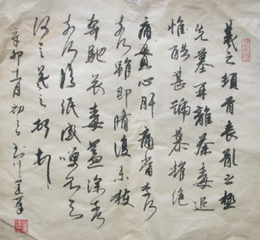 羲之頓首喪亂之極
先墓再離荼毒追
惟酷甚號慕摧絕
痛貫心肝痛當奈何
奈何雖即脩復未獲
奔馳哀毒益深奈何
奈何臨紙感哽不知
何言羲之頓首
辛卯十一月初